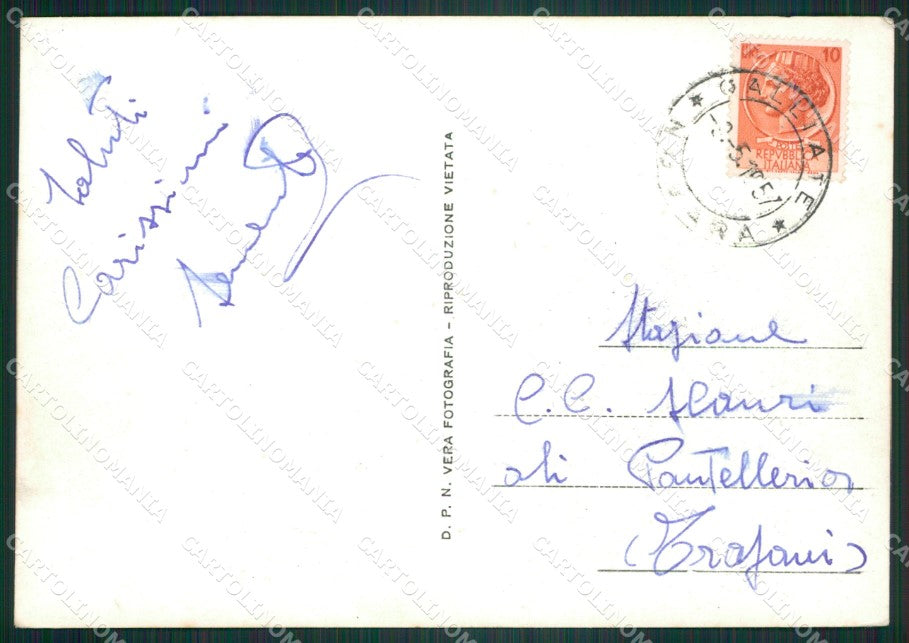 Saluti
Carissimi
D. P. N. VERA FOTOGRAFIA - RIPRODUZIONE VIETATA
10
POSTE
REPVBBLICA
ITALIANA
* GALLIATE *
NOVARA
-2.-5.57
Stazione
C.C. Scauri
di Pantelleria
(Trapani)
CARTOLINOMANIA